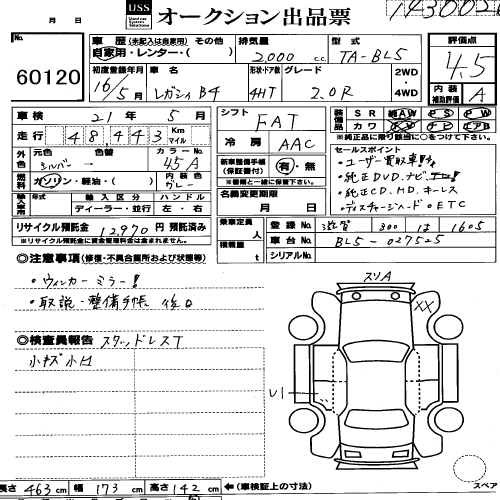 USS オークション出品票
No. 60120
車歴 (未記入は自家用) その他
自家用・レンター・( )
排気量 2,000 cc
型式 TA-BL5
評価点 4.5
初度登録年月 16/5月
車名 レガシィ B4
形状・ドア数 4HT
グレード 2.0R
2WD
4WD
内装補助評価 A
車検 21年 5月
走行 48,443 Km マイル
シフト FAT
冷房 AAC
装備品 S R AW P S P W
カワ ナビ エアB
※純正品に限り該当に○をつけて下さい。
外色 元色 シルバー → 色替 カラーNo. 45A
燃料 ガソリン・軽油・( )
内装色 グレー
新車整備手帳(保証書付) 有・無
※整備手帳と一緒に保管して下さい。
セールスポイント
・ユーザー買取車
・純正DVD.ナビ
・純正CD.MD.キーレス
・ディスチャージヘッド・ETC
年式 輸入区分 ハンドル
ディーラー・並行 左・右
名義変更期限 月 日
リサイクル預託金 12,970円 預託済み
※リサイクル預託金に資金管理料金は含まれません。
乗車定員 人
積載量 t
登録No. 滋賀 300 は 1605
車台No. BL5-027525
シリアルNo.
◎注意事項 (修復・不具合箇所および状態等)
・ウィンカーミラー
・取説・整備手帳 後日
◎検査員報告 スタッドレスT
小キズ小凹
スリA
XX
U1
長さ 463cm 幅 173cm 高さ 142cm ←(車検証上の寸法)
スペア